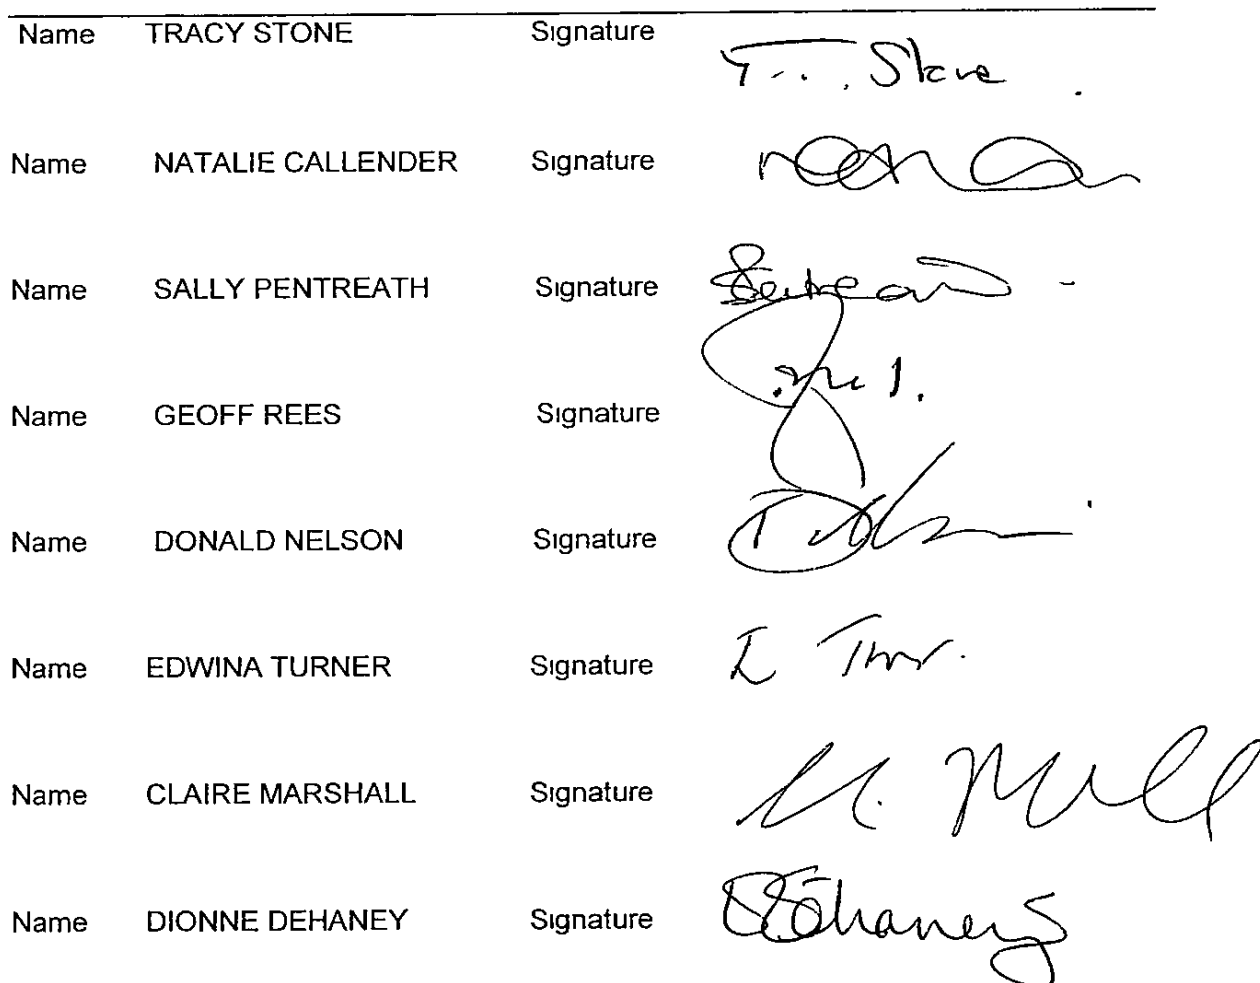 Name TRACY STONE Signature T... Stone.
Name NATALIE CALLENDER Signature
Name SALLY PENTREATH Signature
Name GEOFF REES Signature
Name DONALD NELSON Signature
Name EDWINA TURNER Signature E Turner.
Name CLAIRE MARSHALL Signature
Name DIONNE DEHANEY Signature Dehaney